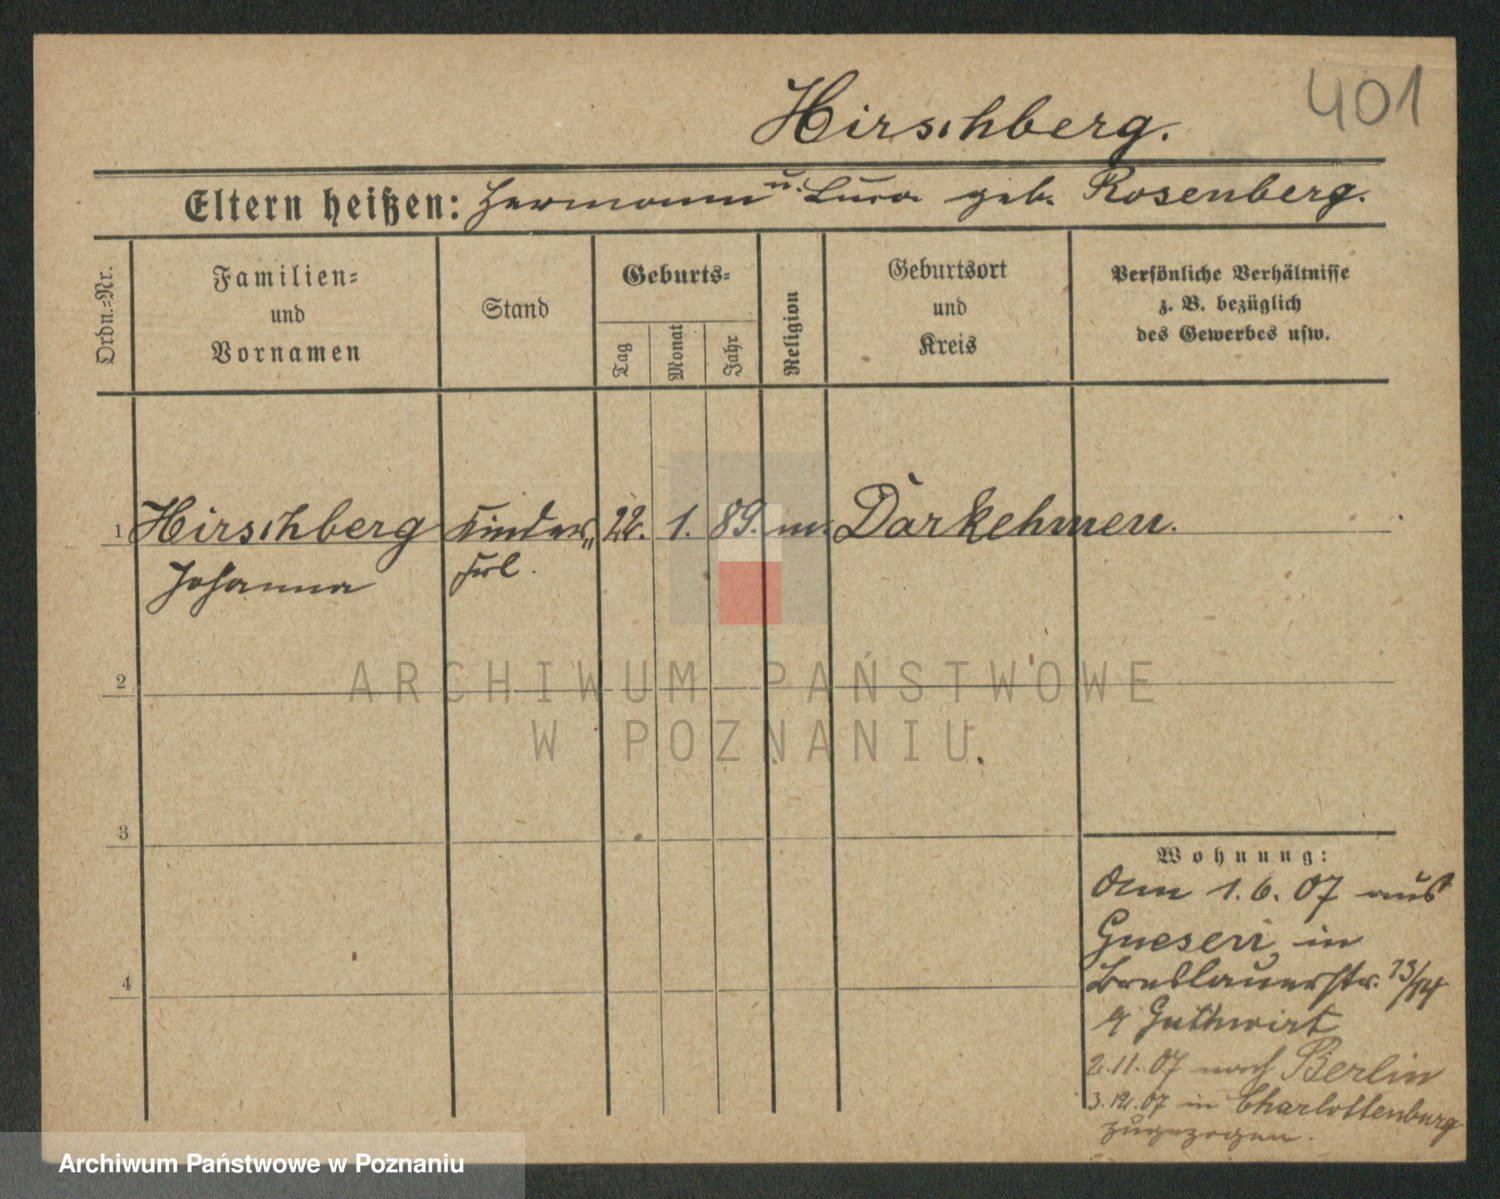 401
Hirschberg.
Eltern heißen: Hermann u. Lina geb. Rosenberg.
Ordn.=Nr.
Familien=
und
Vornamen
Stand
Geburts=
Tag
Monat
Jahr
Religion
Geburtsort
und
Kreis
Persönliche Verhältnisse
z. B. bezüglich
des Gewerbes usw.
1 Hirschberg Kinder„ 22. 1. 89. m. Darkehmen.
Johanna frl.
2
3
4
Wohnung:
Am 1.6.07 aus
Gnesen in
Breslauerstr. 13/14
Guthwirt
2.11.07 nach Berlin
3.12.07 in Charlottenburg
zugezogen.
ARCHIWUM PAŃSTWOWE
W POZNANIU
Archiwum Państwowe w Poznaniu